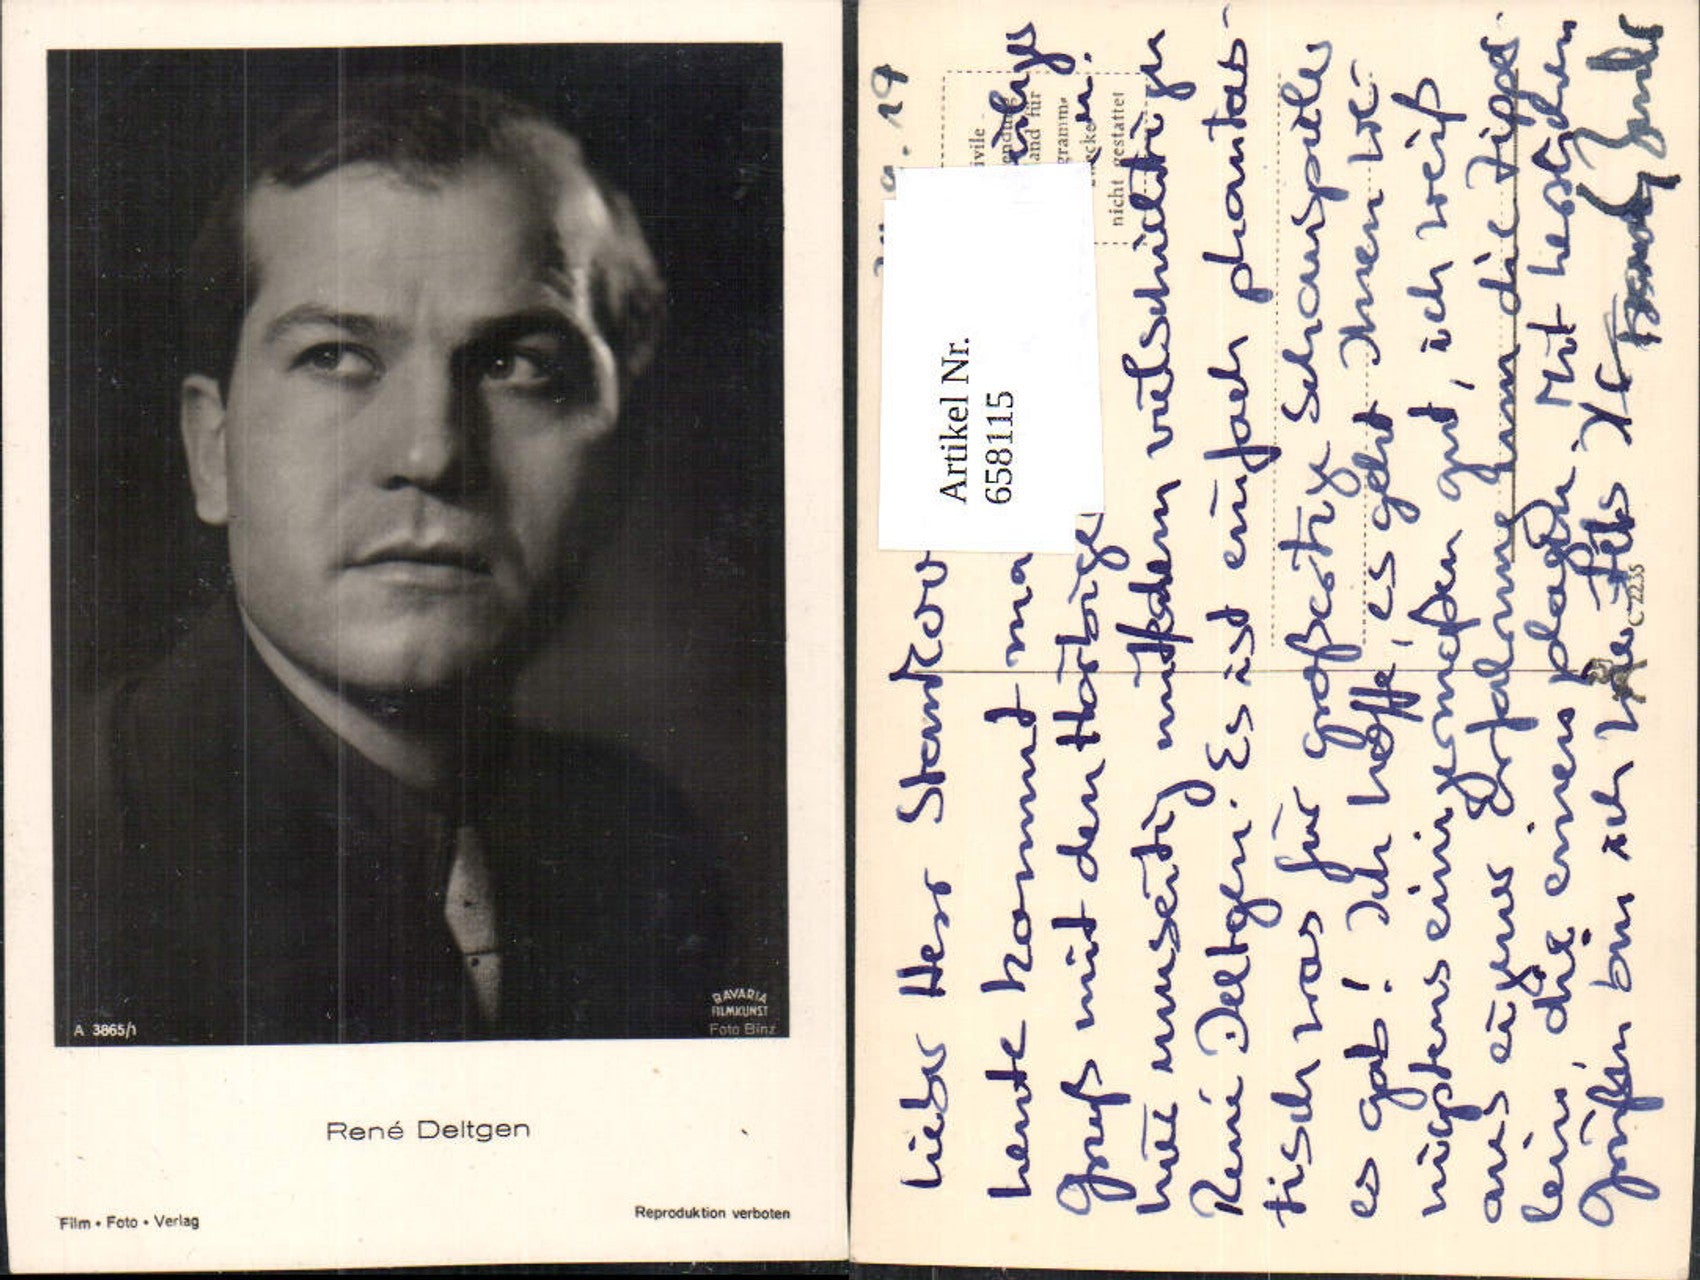 A 3865/1
BAVARIA
FILMKUNST
Foto Binz
René Deltgen
Film • Foto • Verlag
Reproduktion verboten
Artikel Nr.
658115
nicht gestattet
Lieber Herr Stankov
heute kommt ma
Gruß mit den Hörbiger
René Deltgen. Es ist einfach phantas-
tisch was für großartige Schauspieler
es gab! Ich hoffe, es geht Ihnen we-
nigstens einigermaßen gut, ich weiß
aus eigener Erfahrung um die Zipper-
lein, die einen plagen. Mit herzlichen
Grüßen bin ich wie stets Ihr